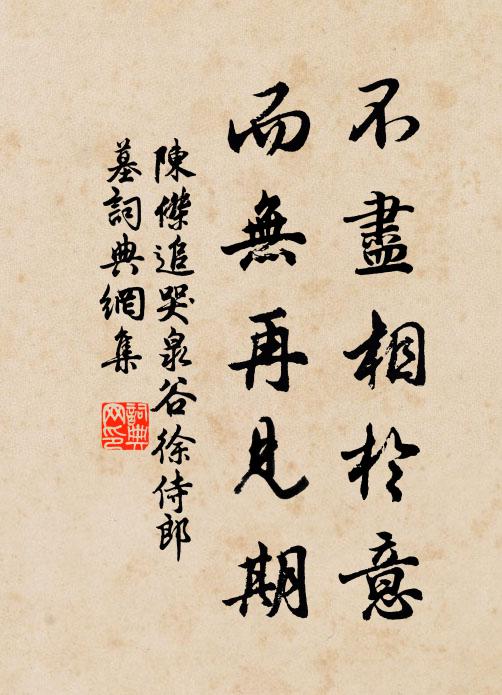 不盡相於意
而無再見期
陳傑追哭泉谷徐侍郎
墓詞典網集
詞典网印